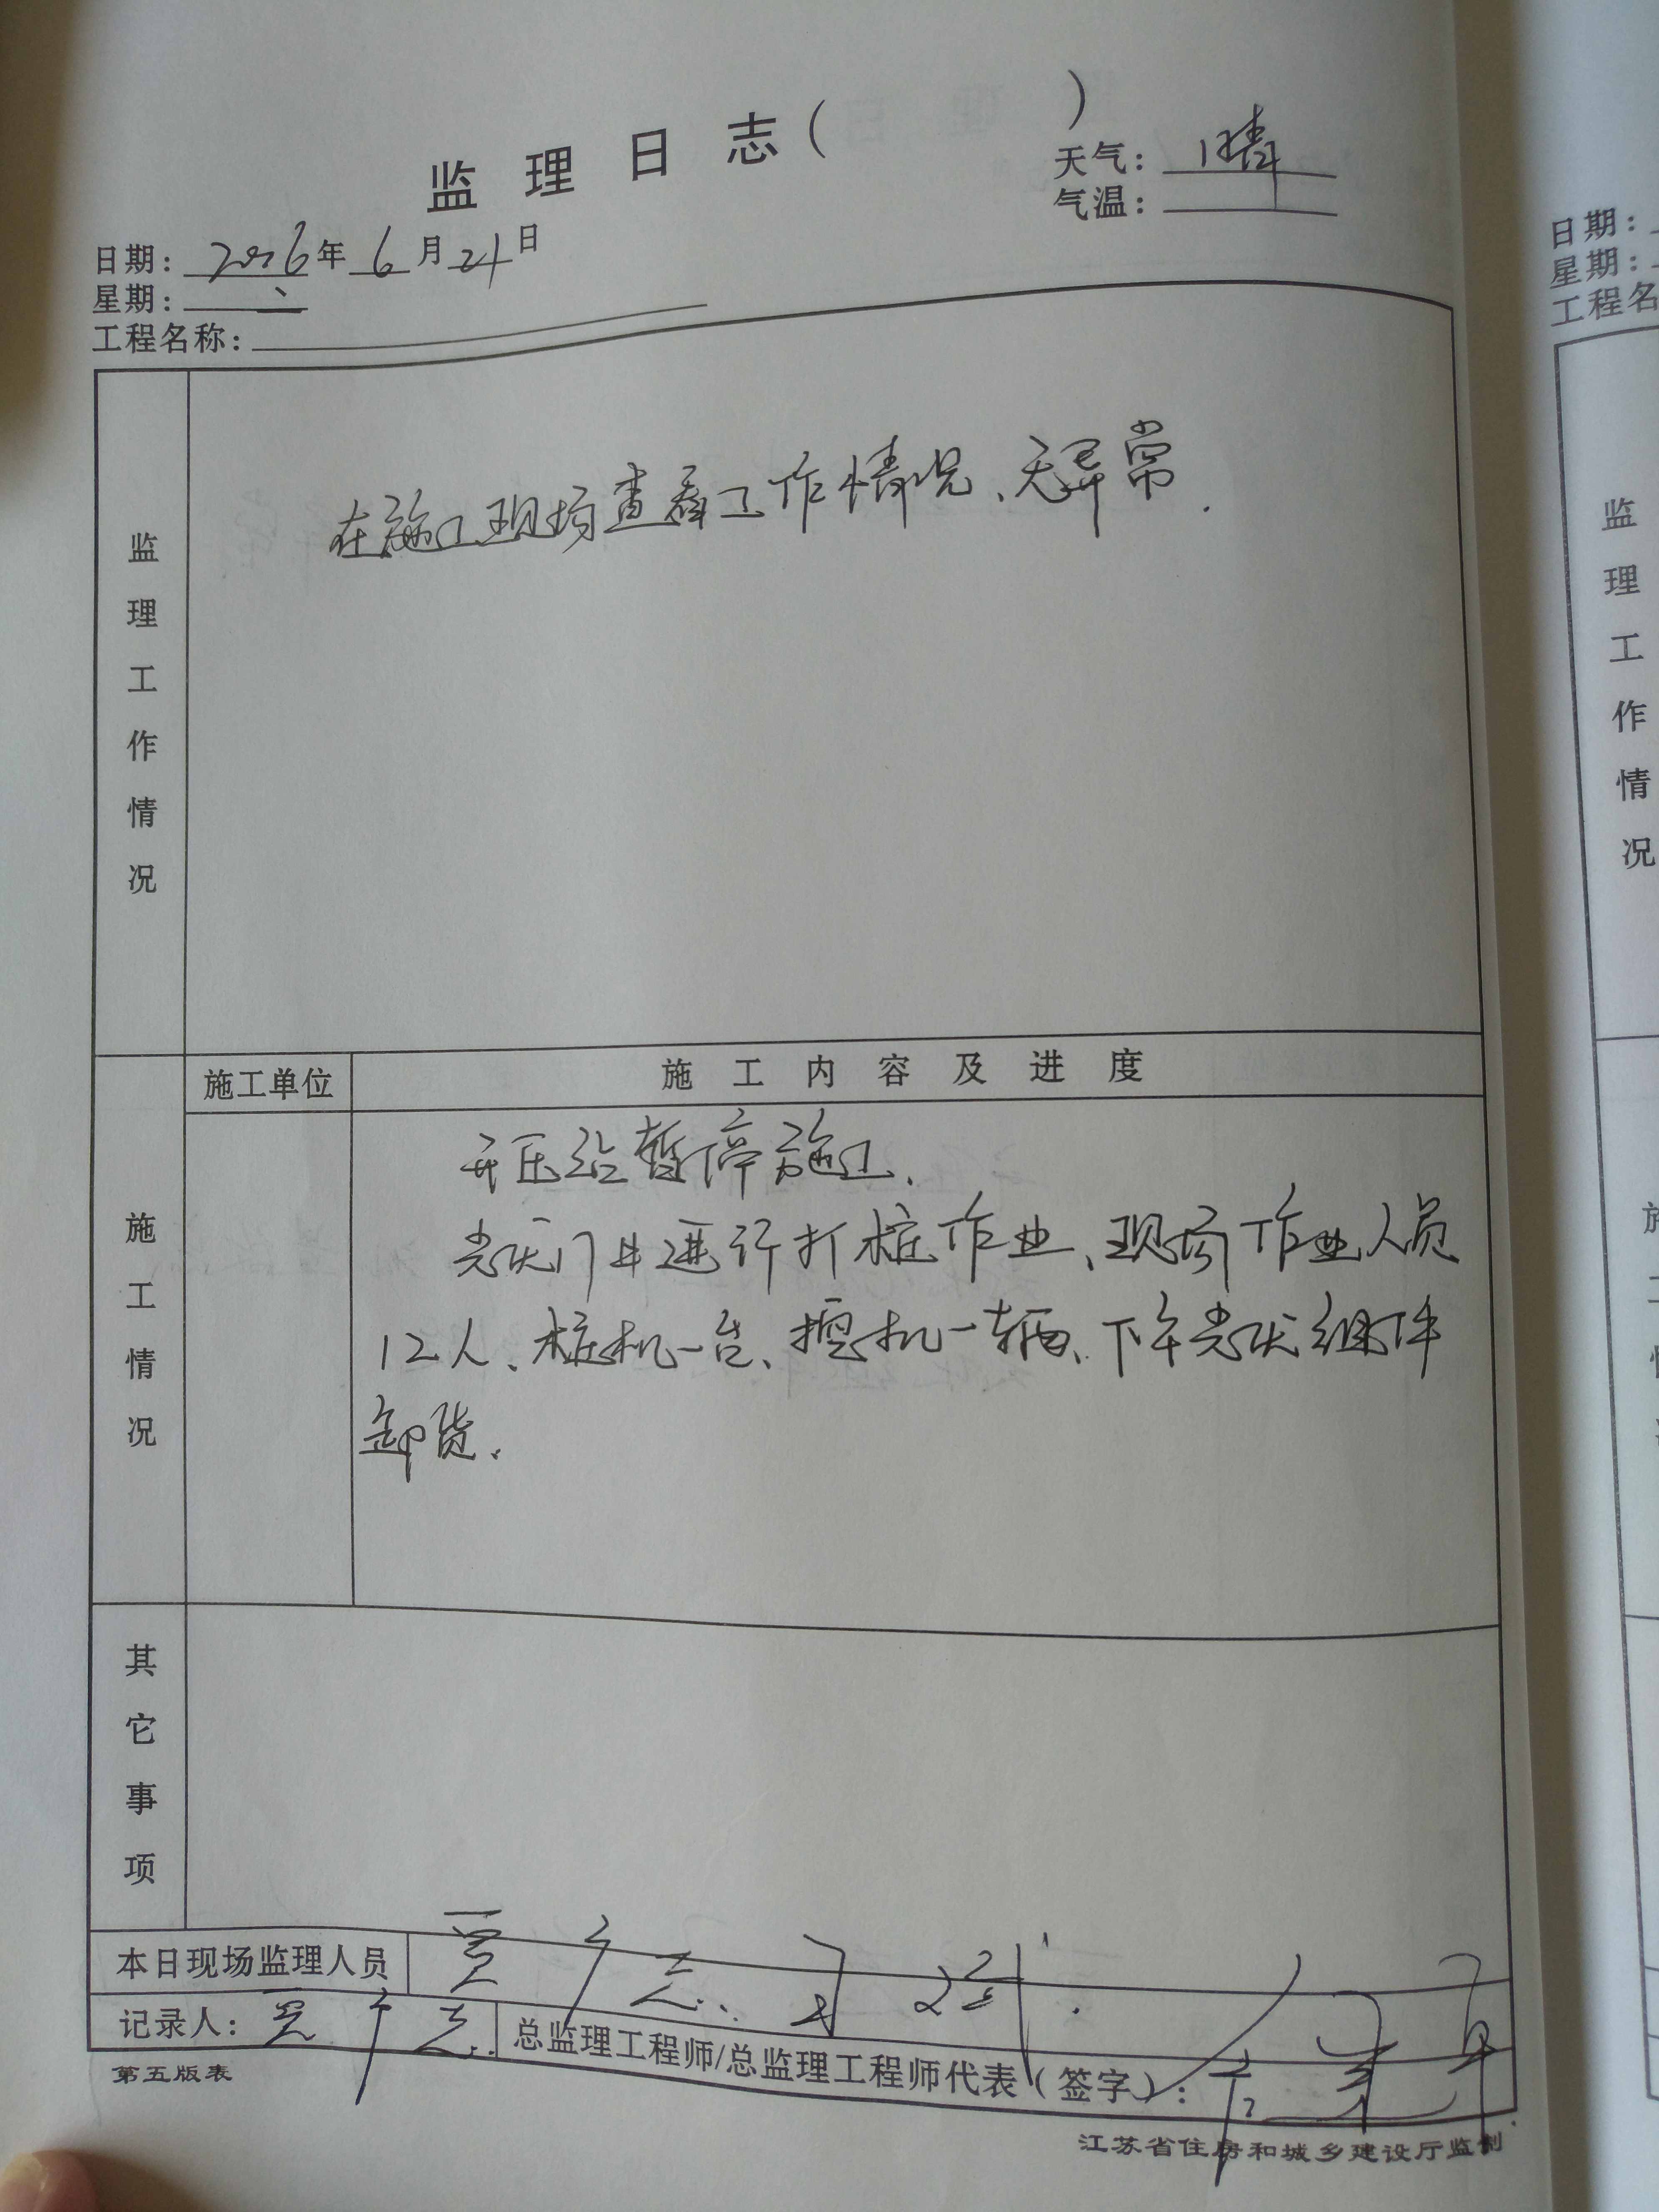 监理日志( )
天气: 晴
气温:
日期: 2016年6月21日
星期: 二
工程名称:
监理工作情况
在施工现场查看工作情况、无异常.
施工单位
施工内容及进度
施工情况
升压站暂停施工.
光伏厂区进行打桩作业、现场作业人员
12人、桩机一台、挖机一辆、下午光伏组件
卸货.
其它事项
本日现场监理人员
记录人:
总监理工程师/总监理工程师代表(签字):
第五版表
江苏省住房和城乡建设厅监制
日期:
星期:
工程名
监理工作情况